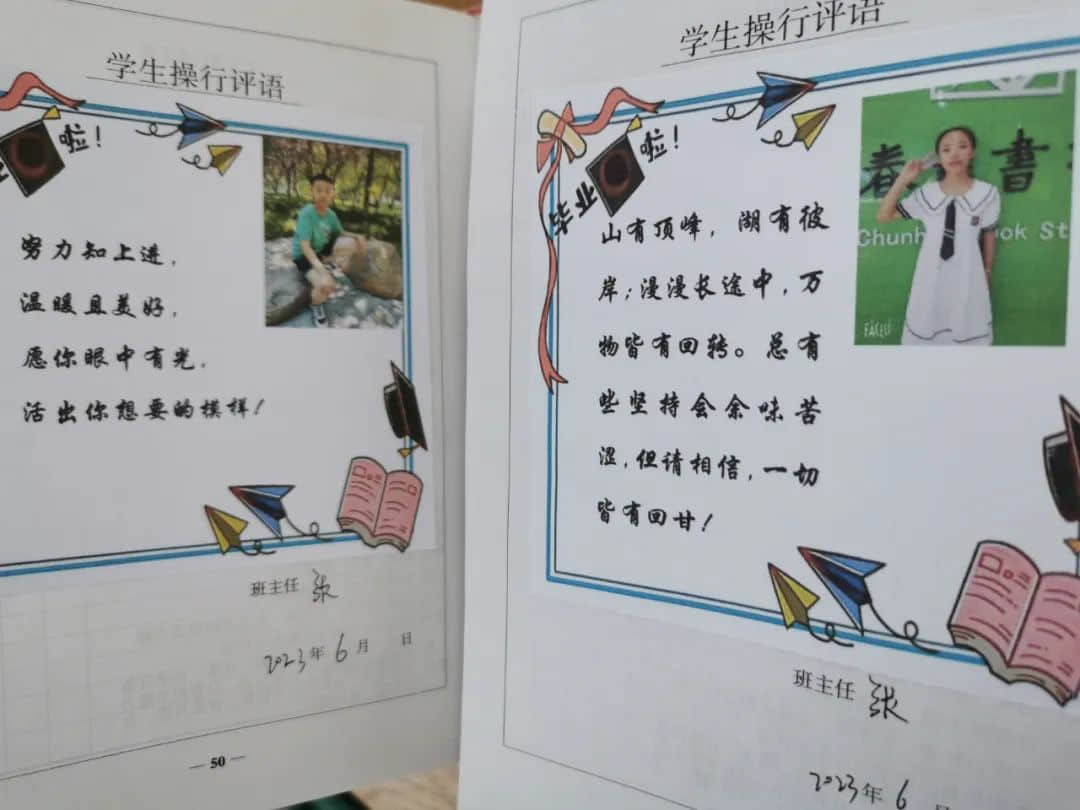 学生操行评语
业啦！
努力知上进，
温暖且美好，
愿你眼中有光，
活出你想要的模样！
班主任 张
2023年6月 日
— 50 —
学生操行评语
毕业啦！
春 書
Chunh ook St
FACEU
山有顶峰，湖有彼
岸；漫漫长途中，万
物皆有回转。总有
些坚持会余味苦
涩，但请相信，一切
皆有回甘！
班主任 张
2023年6月